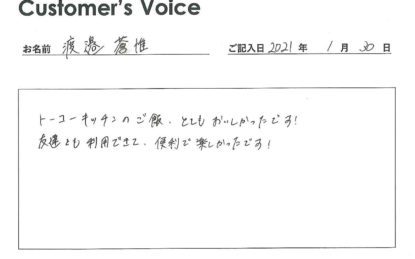 Customer's Voice
お名前 渡邉 蒼惟 ご記入日 2021 年 1 月 30 日
トーコーキッチンのご飯、とてもおいしかったです!
友達とも利用できて、便利で楽しかったです!